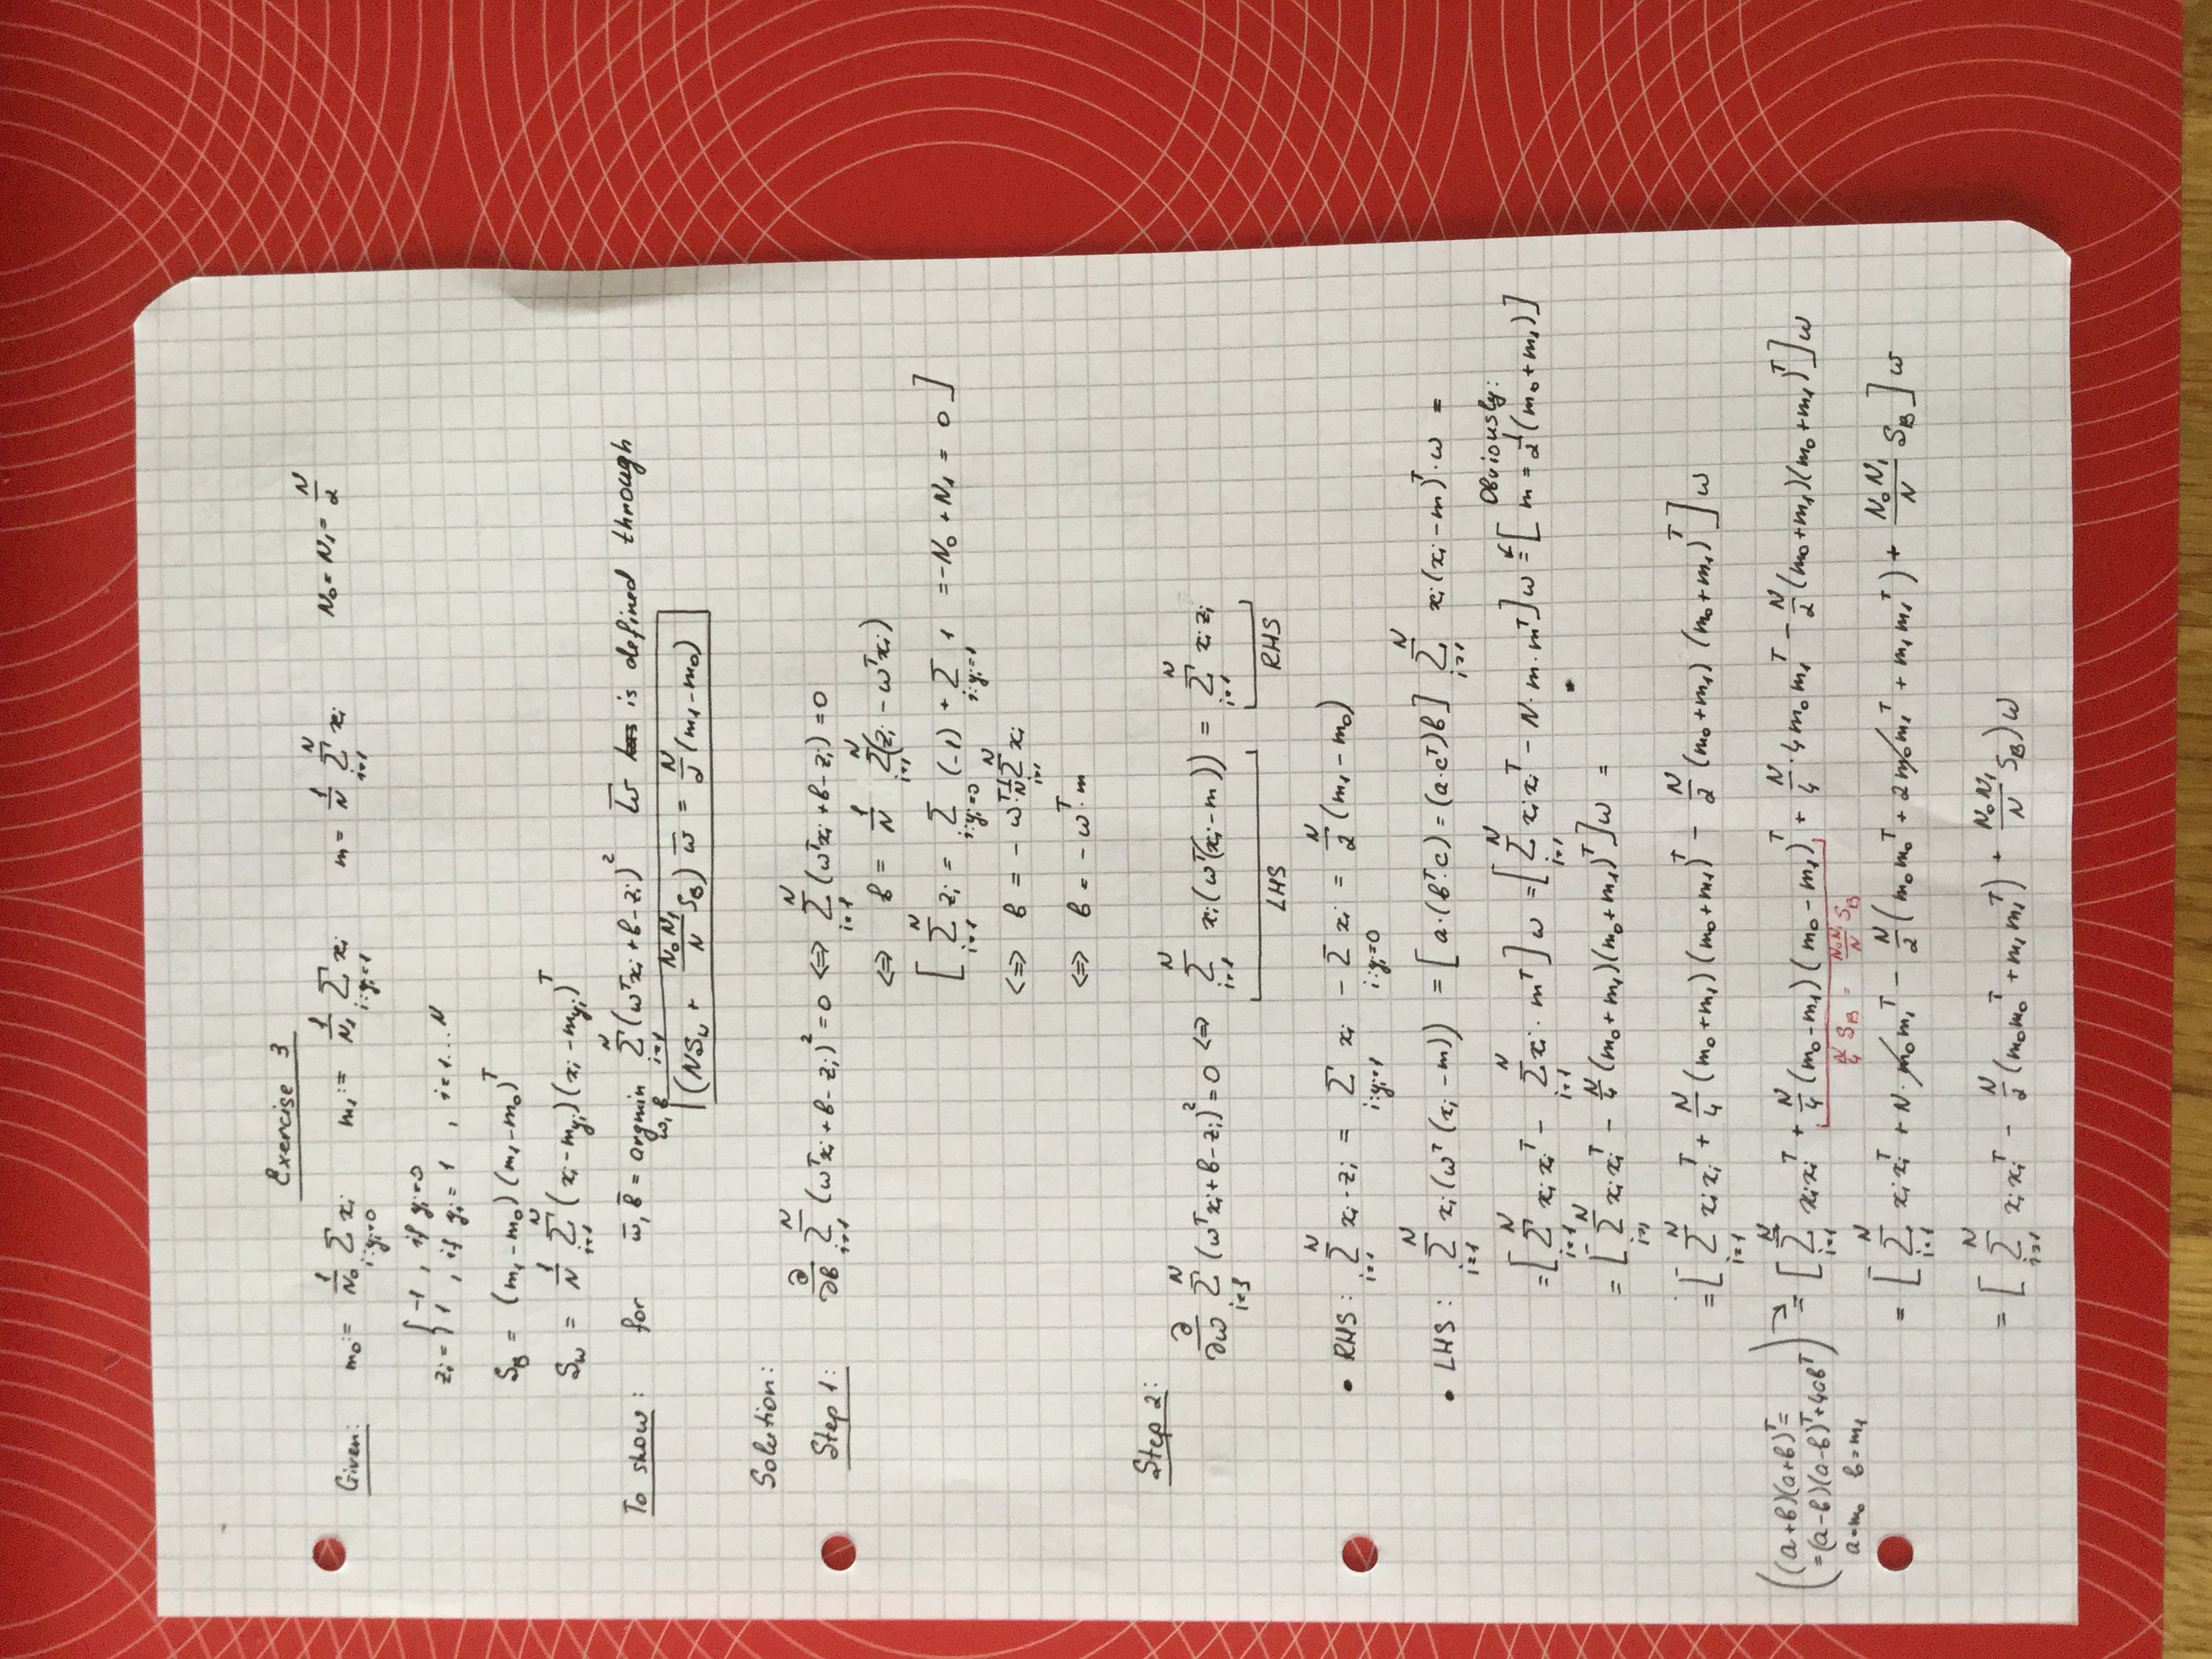 Exercise 3
Given: m₀ := 1/N₀ Σ_{i:yᵢ=0} xᵢ   m₁ := 1/N₁ Σ_{i:yᵢ=1} xᵢ   m = 1/N Σ_{i=1}^{N} xᵢ   N₀ = N₁ = N/2
zᵢ = { -1 , if yᵢ=0
1 , if yᵢ = 1 , i=1...N
S_B = (m₁-m₀)(m₁-m₀)ᵀ
S_w = 1/N Σ_{i=1}^{N} (xᵢ-m_{yᵢ})(xᵢ-m_{yᵢ})ᵀ
To show: for w̄, b̄ = argmin_{w,b} Σ_{i=1}^{N} (wᵀxᵢ+b-zᵢ)²   w̄ is defined through
(NS_w + N₀N₁/N S_B) w̄ = N/2 (m₁-m₀)
Solution:
Step 1: ∂/∂b Σ_{i=1}^{N} (wᵀxᵢ+b-zᵢ)² = 0 <=> Σ_{i=1}^{N} (wᵀxᵢ+b-zᵢ) = 0
<=> b = 1/N Σ_{i=1}^{N} (zᵢ - wᵀxᵢ)
[ Σ_{i=1}^{N} zᵢ = Σ_{i:yᵢ=0} (-1) + Σ_{i:yᵢ=1} 1 = -N₀ + N₁ = 0 ]
<=> b = - wᵀ·1/N Σ_{i=1}^{N} xᵢ
<=> b = - wᵀ·m
Step 2:
∂/∂w Σ_{i=1}^{N} (wᵀxᵢ+b-zᵢ)² = 0 <=> Σ_{i=1}^{N} xᵢ(wᵀ(xᵢ-m)) = Σ_{i=1}^{N} xᵢzᵢ
LHS   RHS
• RHS: Σ_{i=1}^{N} xᵢ·zᵢ = Σ_{i:yᵢ=1} xᵢ - Σ_{i:yᵢ=0} xᵢ = N/2 (m₁-m₀)
• LHS: Σ_{i=1}^{N} xᵢ(wᵀ(xᵢ-m)) = [a·(bᵀ·c) = (a·cᵀ)b] Σ_{i=1}^{N} xᵢ(xᵢ-m)ᵀ·w =
Obviously:
= [Σ_{i=1}^{N} xᵢxᵢᵀ - Σ_{i=1}^{N} xᵢ·mᵀ] w = [Σ_{i=1}^{N} xᵢxᵢᵀ - N·m·mᵀ] w = [ m = 1/2 (m₀+m₁) ]
= [Σ_{i=1}^{N} xᵢxᵢᵀ - N/4 (m₀+m₁)(m₀+m₁)ᵀ] w =
= [Σ_{i=1}^{N} xᵢxᵢᵀ + N/4 (m₀+m₁)(m₀+m₁)ᵀ - N/2 (m₀+m₁)(m₀+m₁)ᵀ] w
((a+b)(a+b)ᵀ =
= (a-b)(a-b)ᵀ + 4abᵀ)
a=m₀ b=m₁
= [Σ_{i=1}^{N} xᵢxᵢᵀ + N/4 (m₀-m₁)(m₀-m₁)ᵀ + N/4·4m₀m₁ᵀ - N/2 (m₀+m₁)(m₀+m₁)ᵀ] w
N/4 S_B = N₀N₁/N S_B
= [Σ_{i=1}^{N} xᵢxᵢᵀ + N·m₀m₁ᵀ - N/2 (m₀m₀ᵀ + 2m₀m₁ᵀ + m₁m₁ᵀ) + N₀N₁/N S_B] w
= [Σ_{i=1}^{N} xᵢxᵢᵀ - N/2 (m₀m₀ᵀ + m₁m₁ᵀ) + N₀N₁/N S_B) w